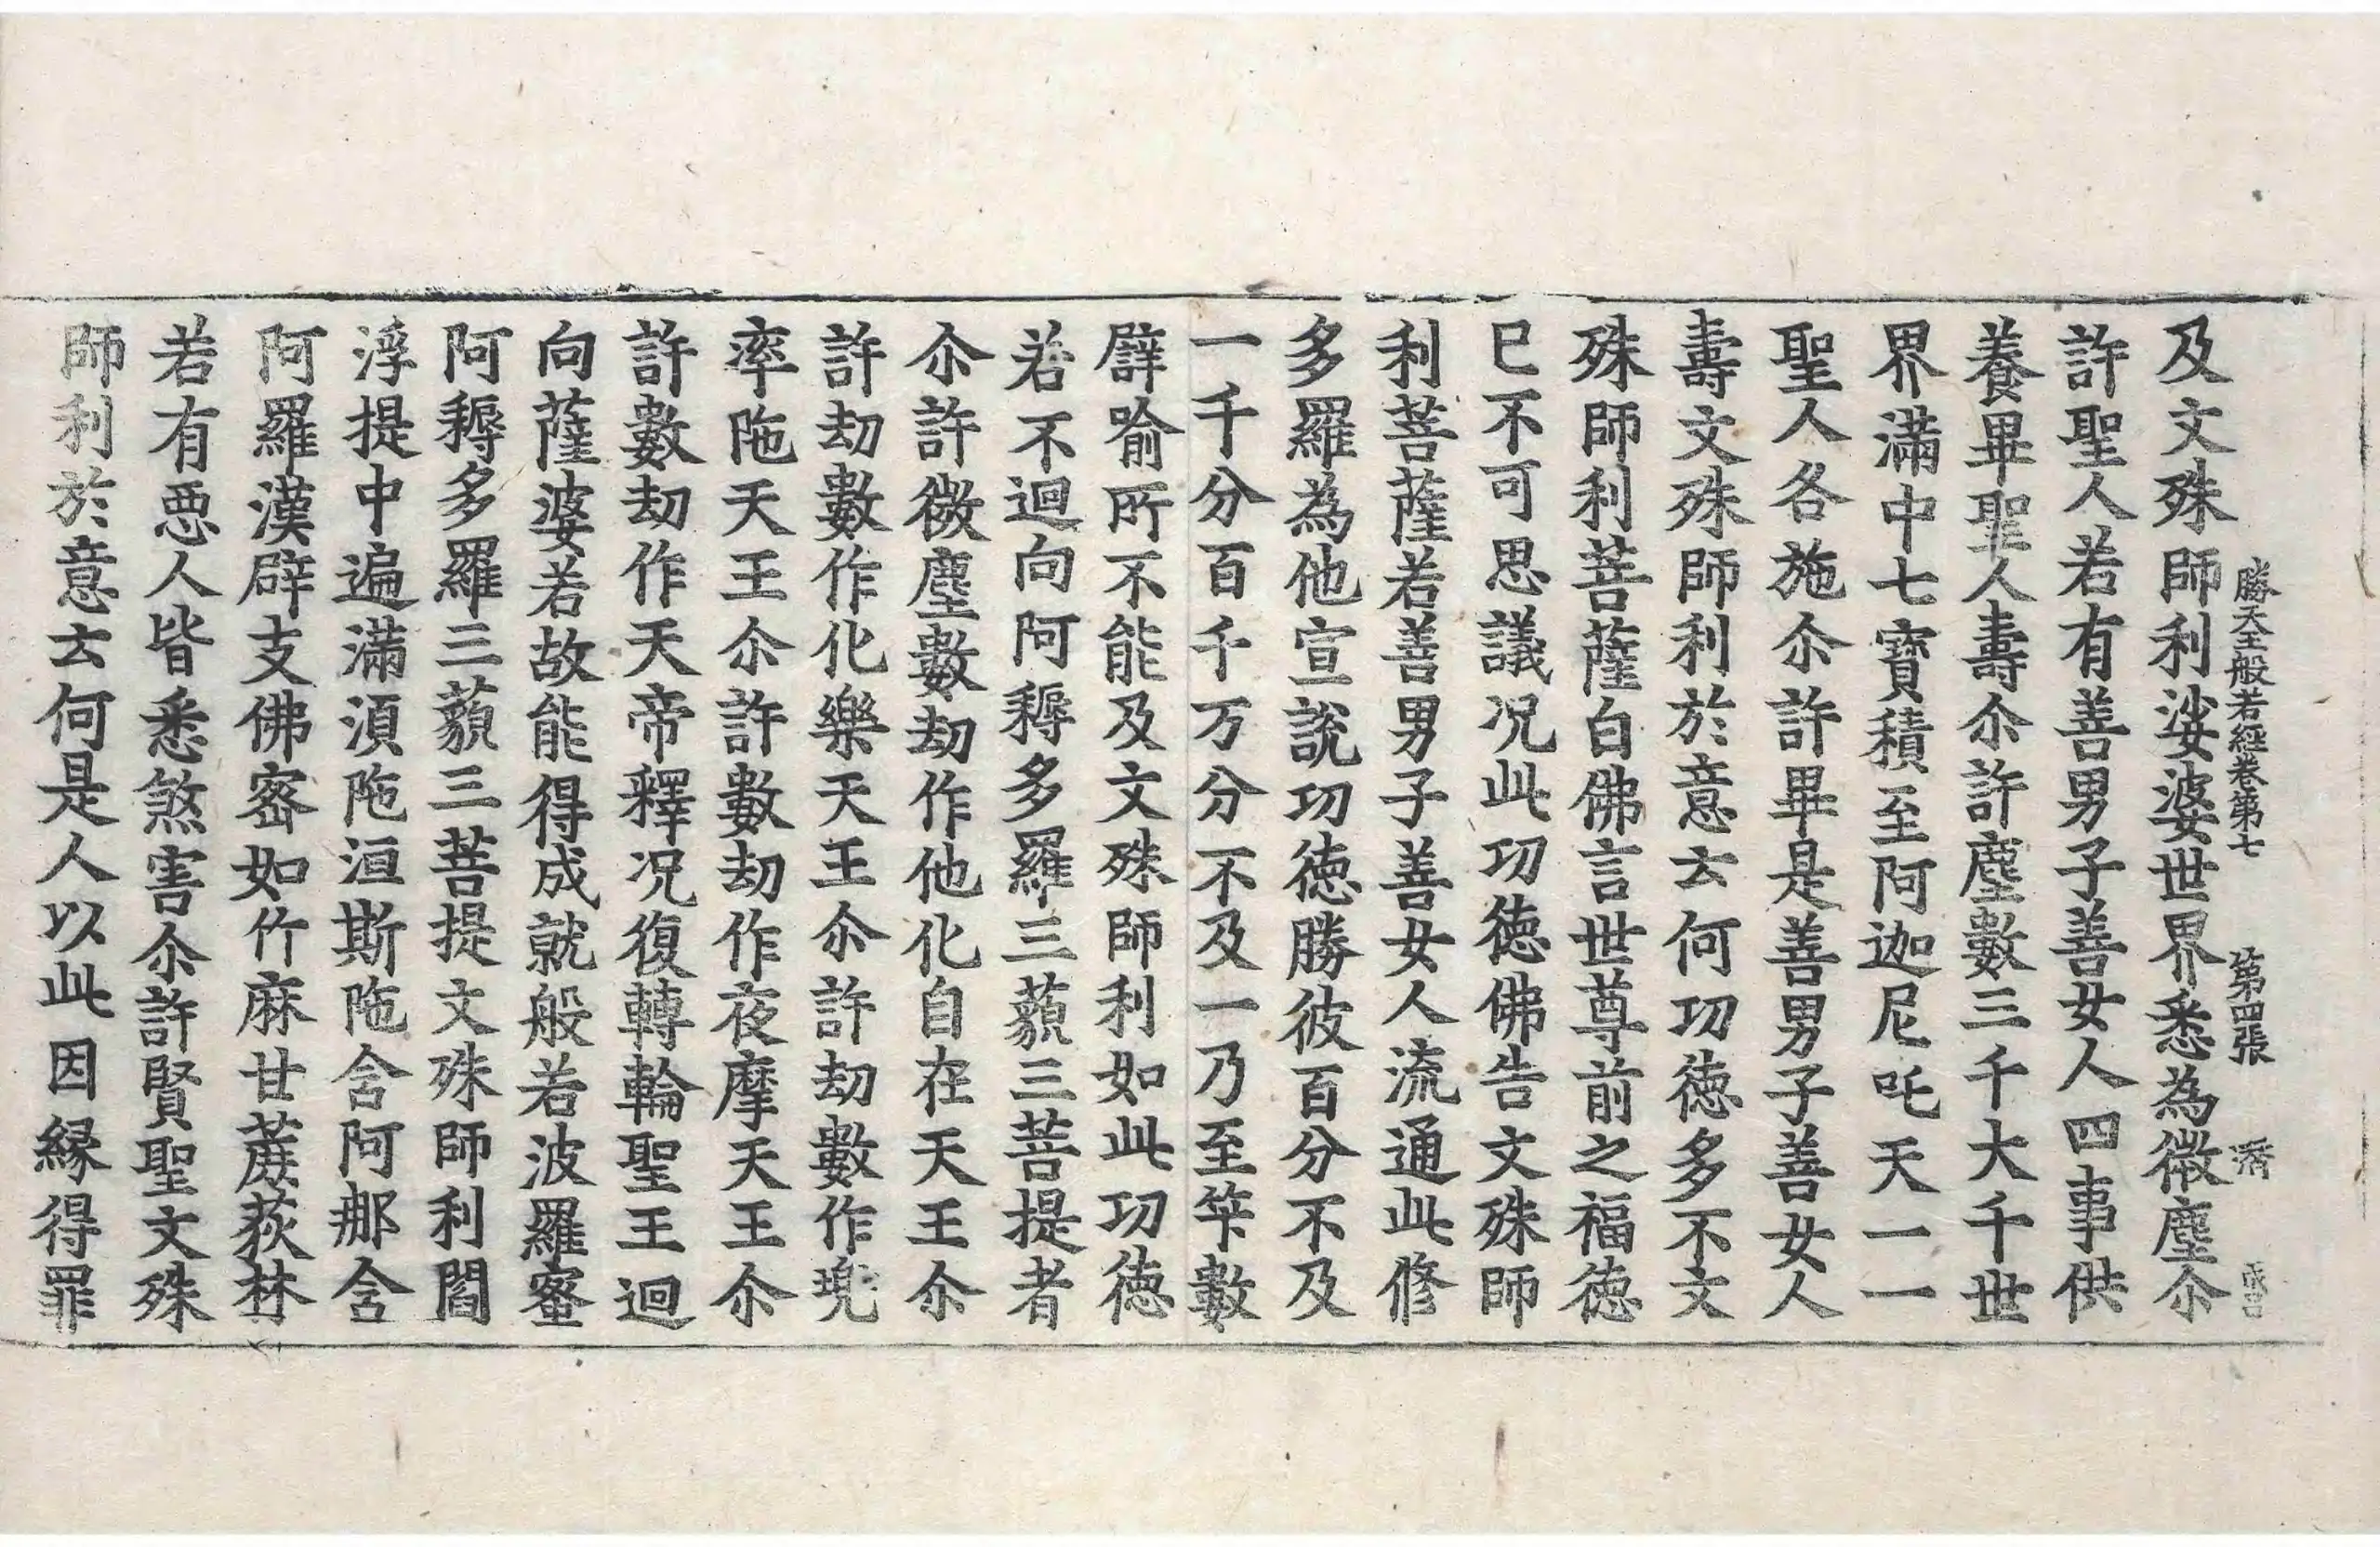 勝天王般若經卷第七 第四張 濟
及文殊師利娑婆世界悉為微塵尒
許聖人若有善男子善女人四事供
養畢聖人壽尒許塵數三千大千世
界滿中七寶積至阿迦尼吒天一一
聖人各施尒許畢是善男子善女人
壽文殊師利於意云何功徳多不文
殊師利菩薩白佛言世尊前之福徳
已不可思議况此功徳佛告文殊師
利菩薩若善男子善女人流通此修
多羅為他宣說功徳勝彼百分不及
一千分百千万分不及一乃至筭數
譬喻所不能及文殊師利如此功徳
若不迴向阿耨多羅三藐三菩提者
尒許微塵數劫作他化自在天王尒
許劫數作化樂天王尒許劫數作兠
率陁天王尒許數劫作夜摩天王尒
許數劫作天帝釋况復轉輪聖王迴
向薩婆若故能得成就般若波羅蜜
阿耨多羅三藐三菩提文殊師利閻
浮提中遍滿湏陁洹斯陁含阿那含
阿羅漢辟支佛宻如竹麻甘蔗荻林
若有惡人皆悉煞害尒許賢聖文殊
師利於意云何是人以此因縁得罪